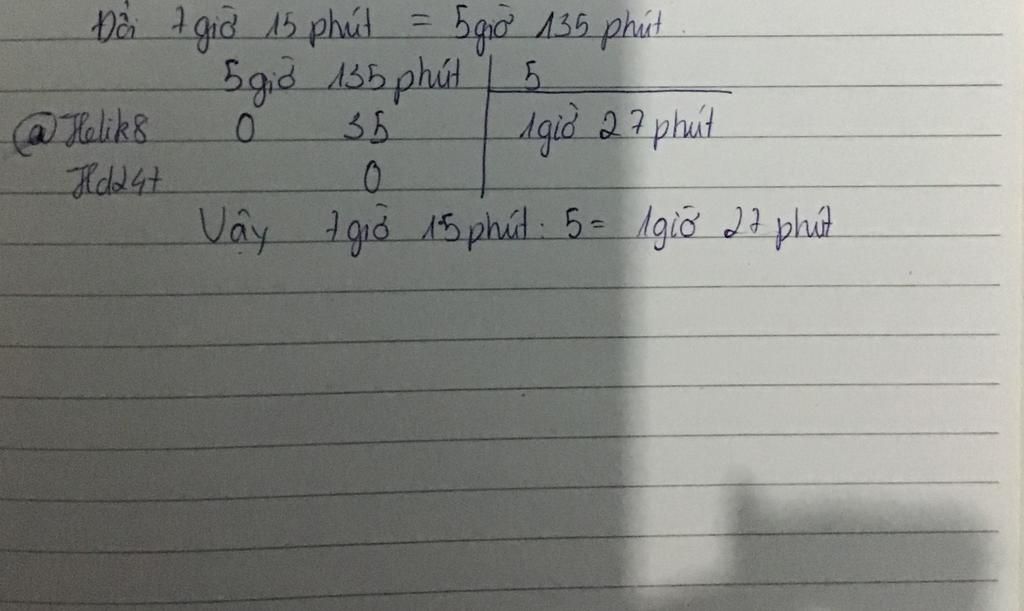 Đổi 7 giờ 15 phút = 5 giờ 135 phút.
5 giờ 135 phút 5
@Helik8 0 35 1 giờ 27 phút
Hd247 0
Vậy 7 giờ 15 phút : 5 = 1 giờ 27 phút